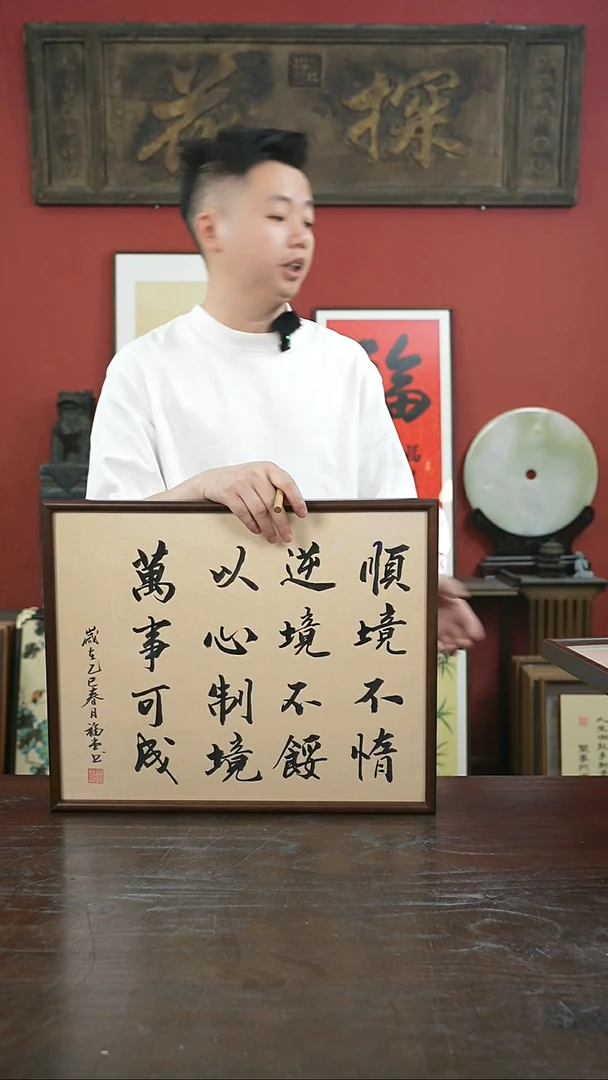 探花
福
順境不惰
逆境不餒
以心制境
萬事可成
歲在乙巳春月福堂書